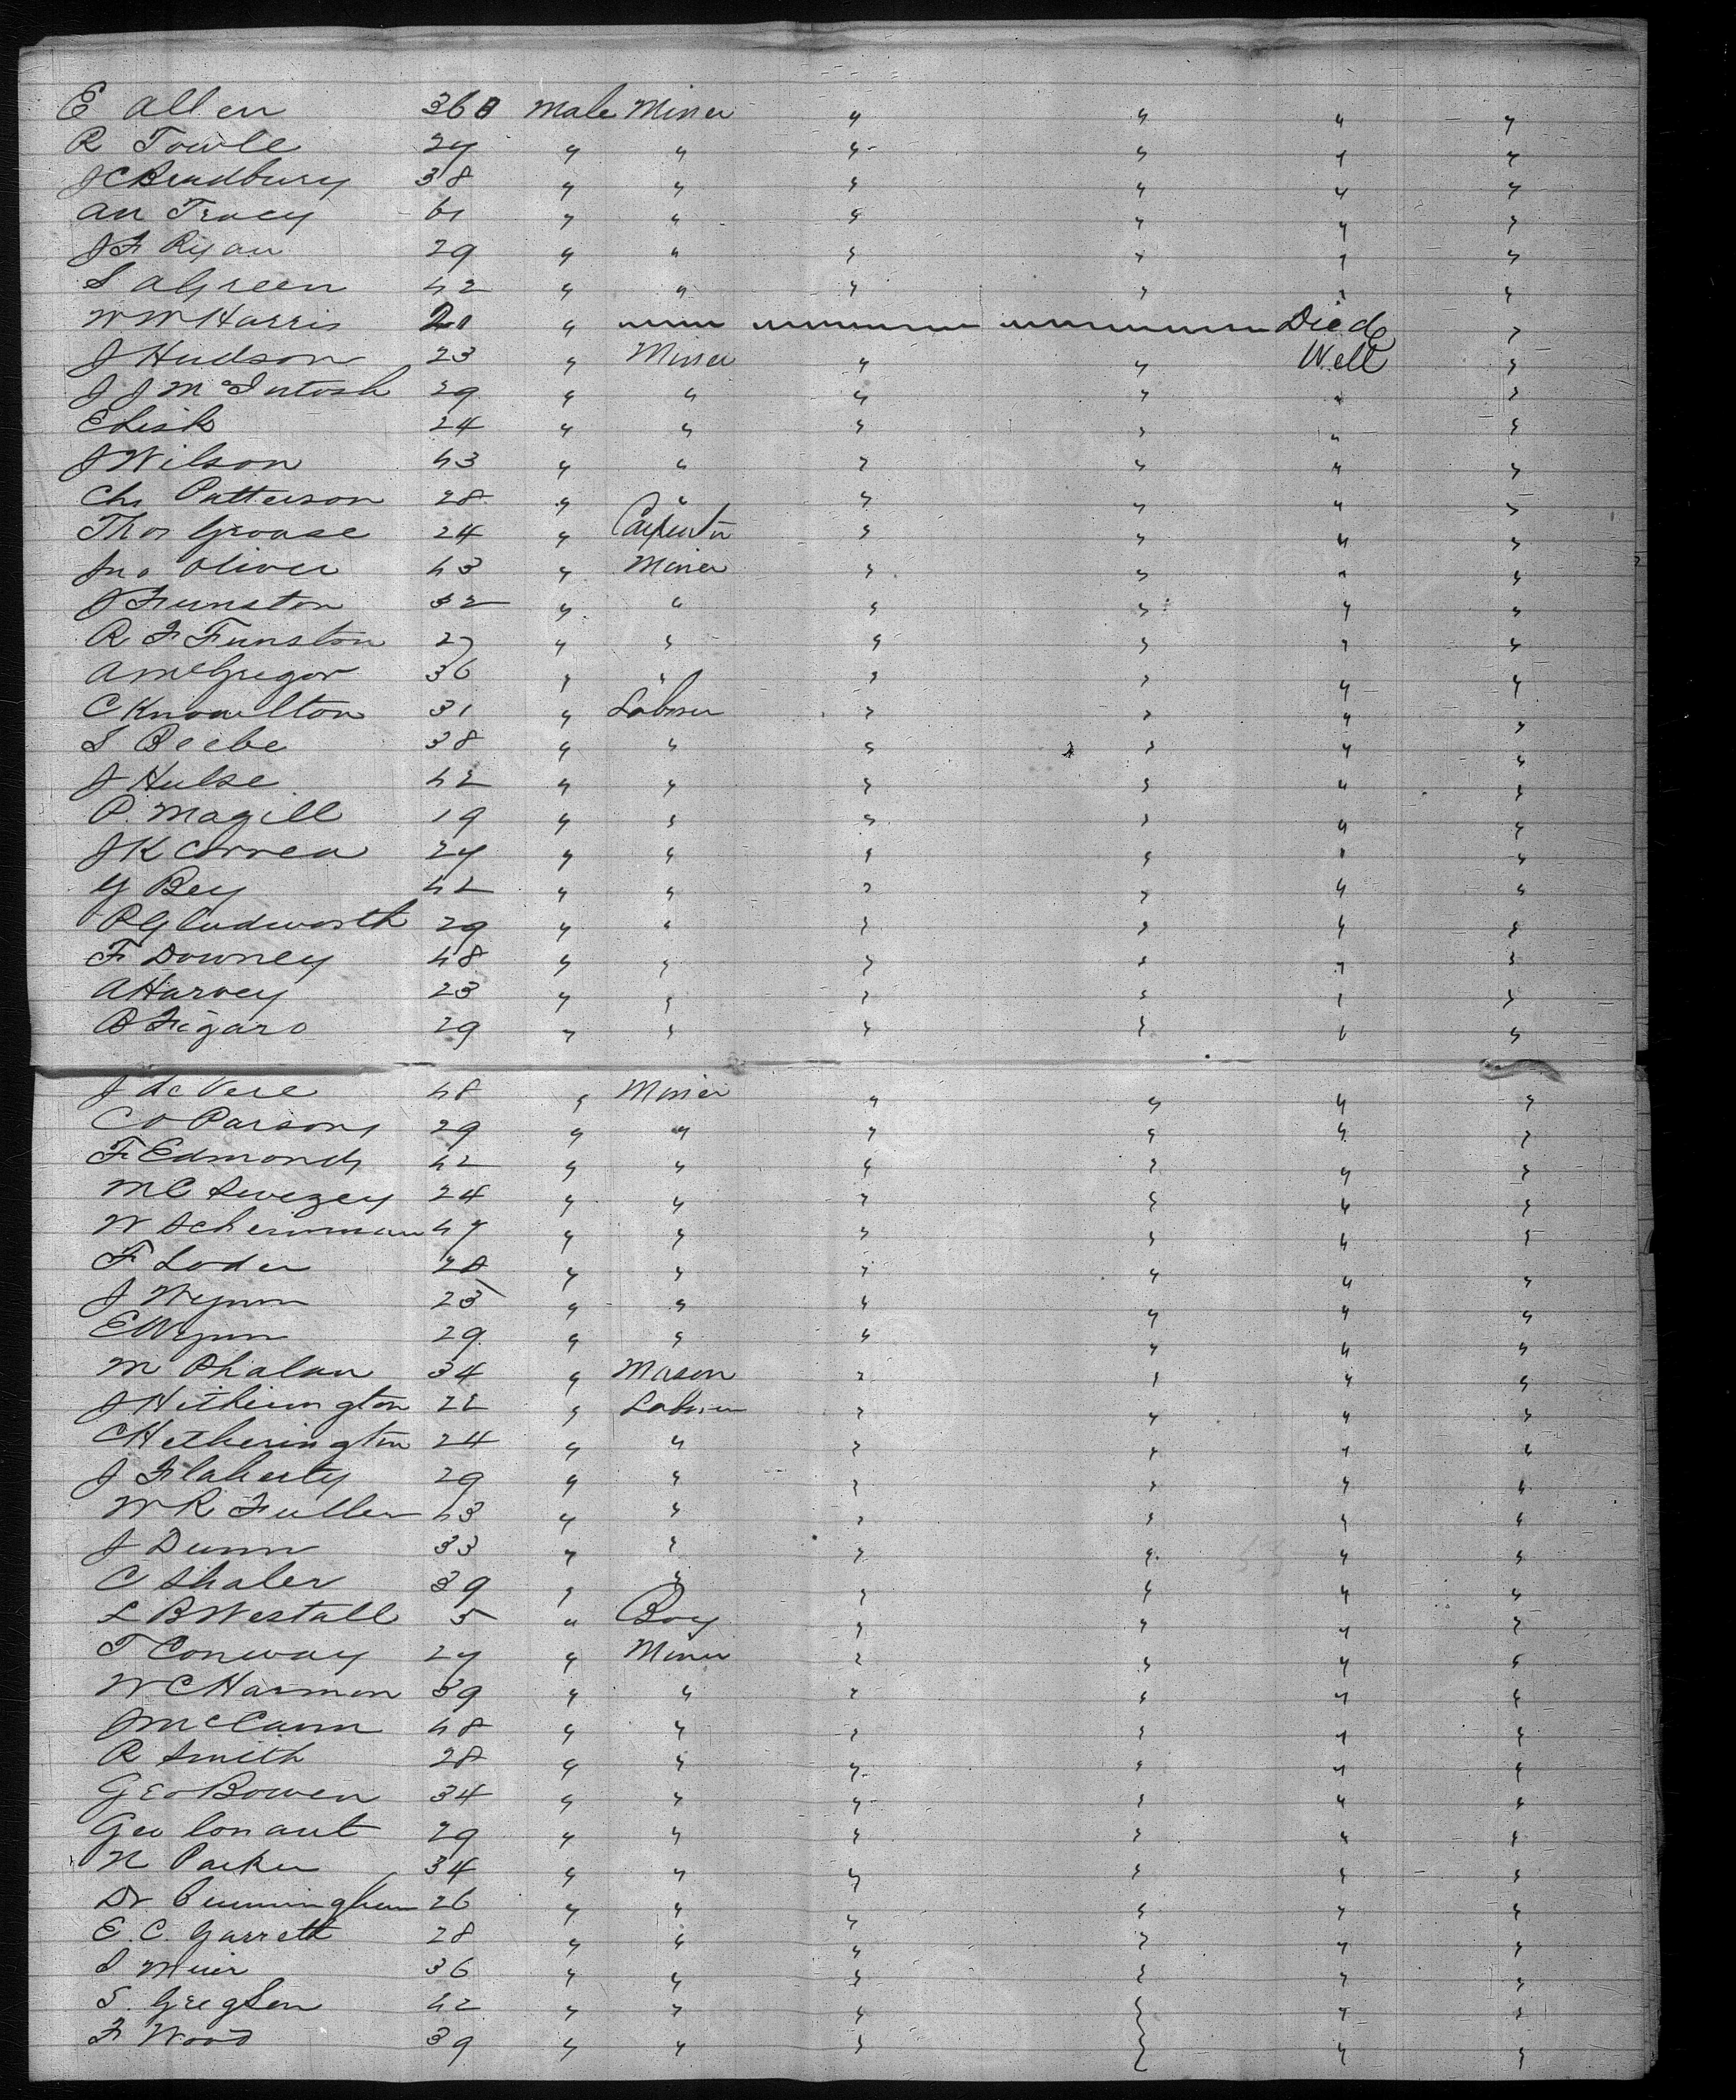 E Allen 36 Male Miner " " " "
R Towle 24 " " " " " "
J C Bradbury 38 " " " " " "
An Tracy 61 " " " " " "
J F Ryan 29 " " " " " "
S A Green 42 " " " " " "
W W Harris 20 " Died "
J Hudson 23 " Miner " " Well "
J J McIntosh 29 " " " " " "
E Lisk 24 " " " " " "
J Wilson 43 " " " " " "
Chs Patterson 28 " " " " " "
Thos Grouse 24 " Carpenter " " " "
Jno Oliver 43 " Miner " " " "
J Funston 32 " " " " " "
R F Funston 27 " " " " " "
A McGregor 36 " " " " " "
C Knowlton 31 " Laborer " " " "
S Beebe 38 " " " " " "
J Hulse 42 " " " " " "
P. Magill 19 " " " " " "
J K Correa 24 " " " " " "
Y Bey 42 " " " " " "
P G Cudworth 29 " " " " " "
F Downey 48 " " " " " "
A Harvey 23 " " " " " "
B Figaro 29 " " " " " "
J de Vere 48 " Miner " " " "
C O Parsons 29 " " " " " "
F Edmonds 42 " " " " " "
M C Swezey 24 " " " " " "
W Schermman 47 " " " " " "
F Loder 28 " " " " " "
J Wynn 25 " " " " " "
E Wynn 29 " " " " " "
M Phalan 34 " Mason " " " "
J Hitherington 22 " Laborer " " " "
C Hetherington 24 " " " " " "
J Flaherty 29 " " " " " "
W R Fuller 43 " " " " " "
J Dunn 33 " " " " " "
C Shaler 39 " " " " " "
L B Westall 5 " Boy " " " "
T Conway 24 " Miner " " " "
W C Harmon 39 " " " " " "
J McCann 48 " " " " " "
R Smith 28 " " " " " "
Geo Bowen 34 " " " " " "
Geo Conant 29 " " " " " "
N Parker 34 " " " " " "
Dr Cunningham 26 " " " " " "
E. C. Garrett 28 " " " " " "
S Muir 36 " " " " " "
S. Gregson 42 " " " " " "
F Wood 39 " " " " " "